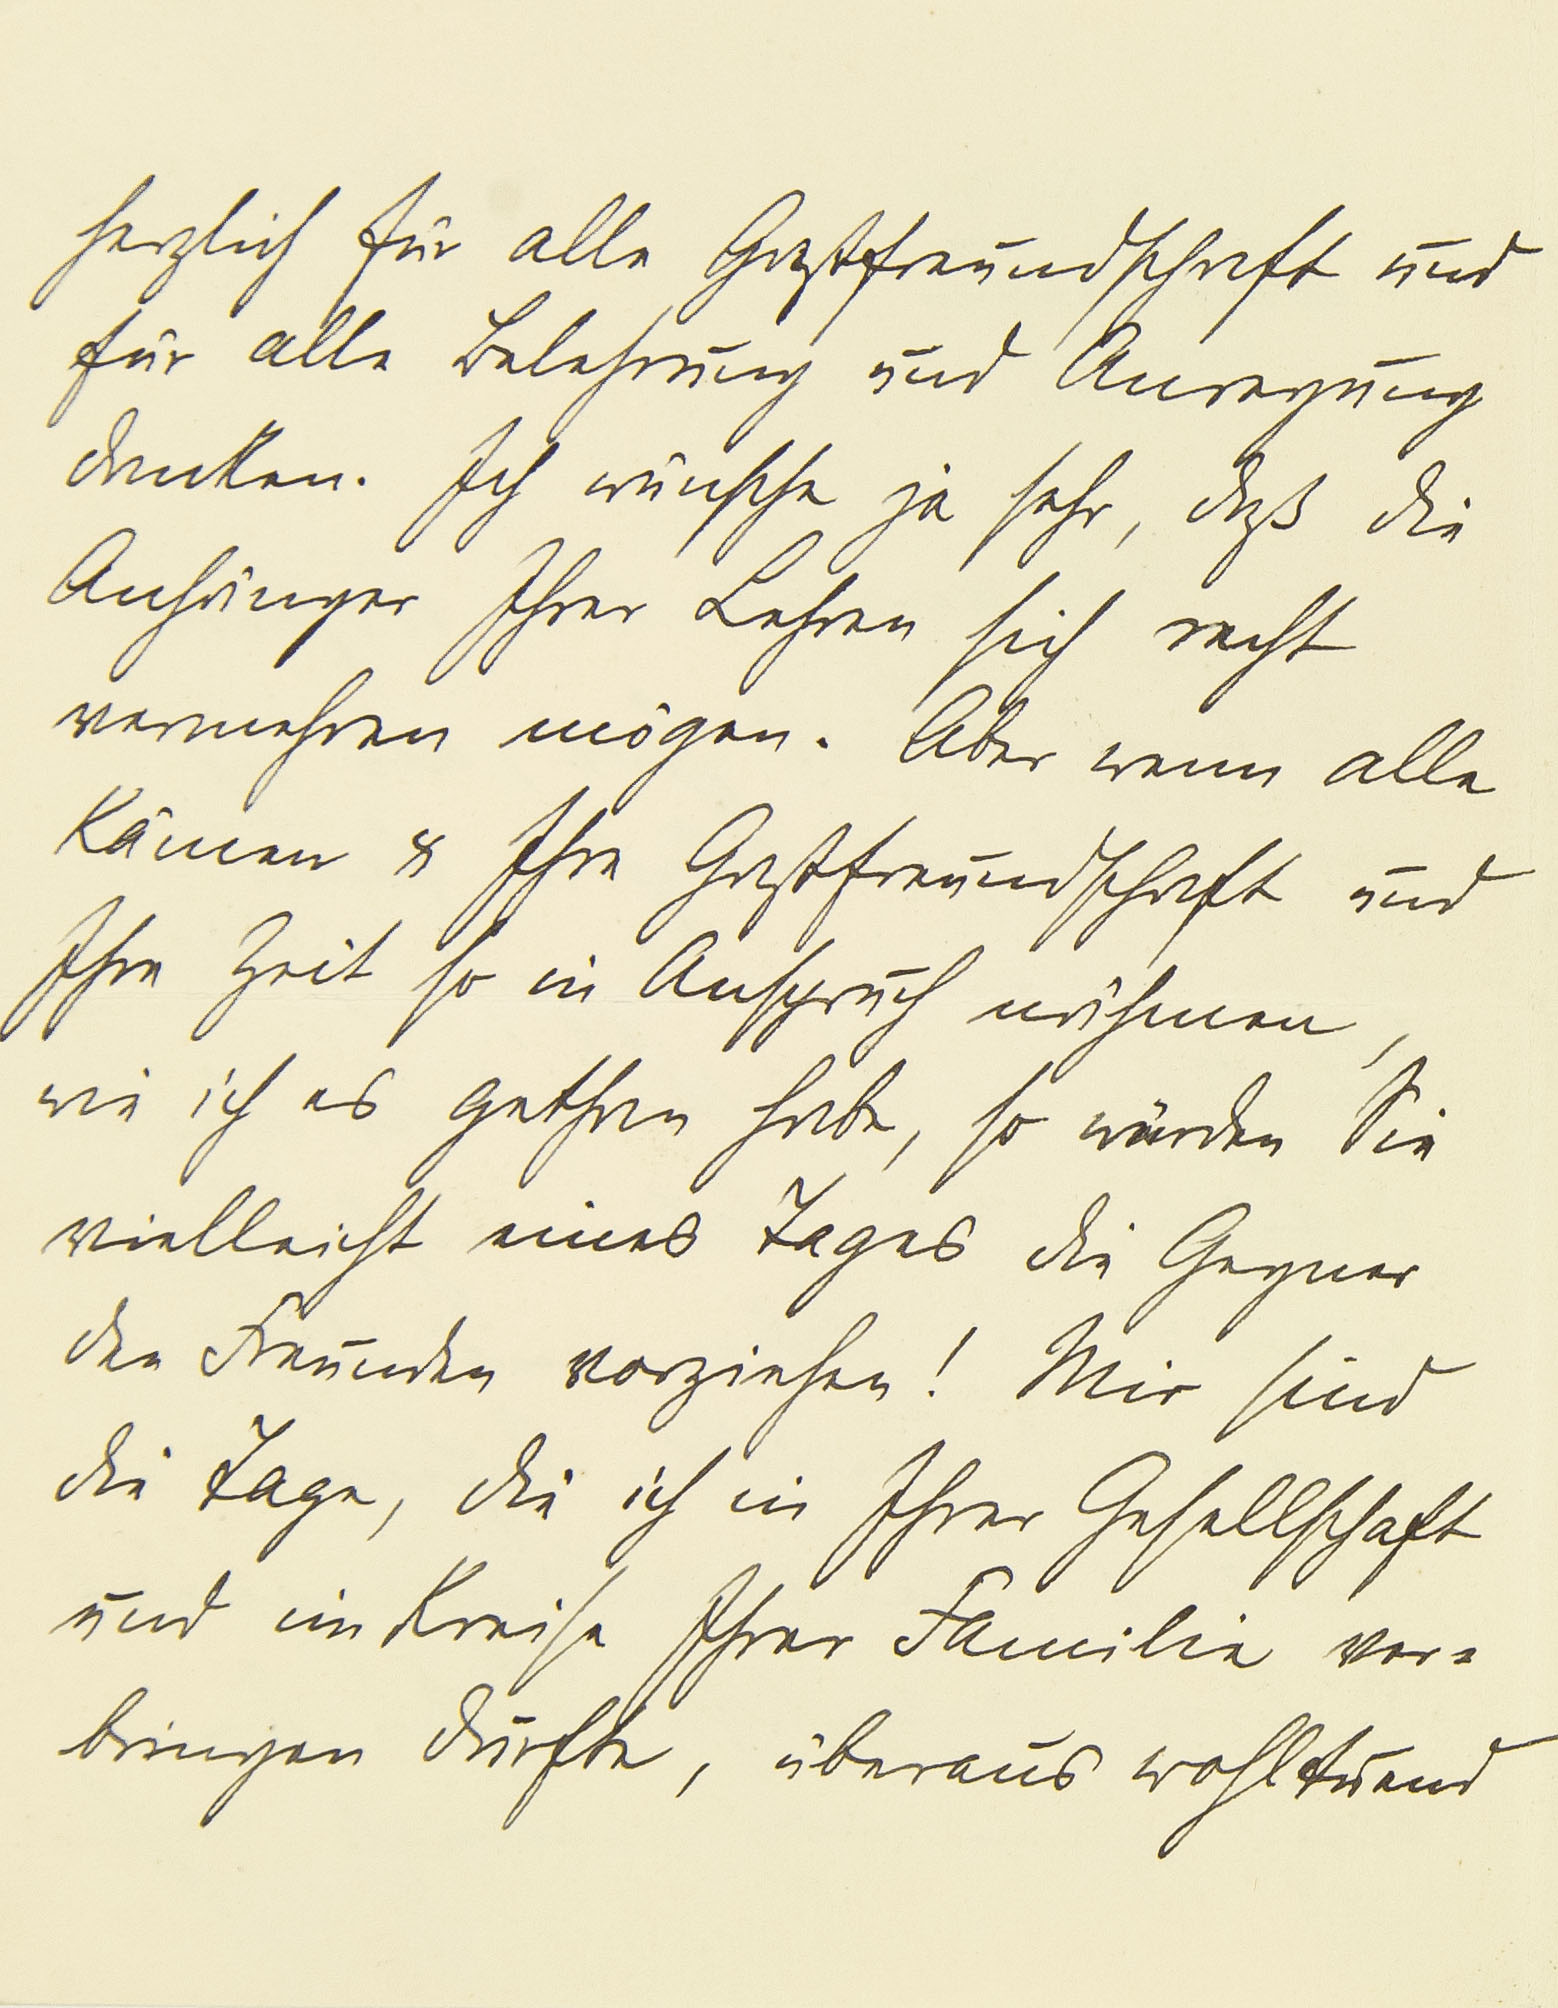 herzlich für alle Gastfreundschaft und
für alle Belehrung und Anregung
danken. Ich wünsche ja sehr, daß die
Anhänger Ihrer Lehren sich recht
vermehren mögen. Aber wenn alle
kämen & Ihre Gastfreundschaft und
Ihre Zeit so in Anspruch nähmen,
wie ich es gethan habe, so würden Sie
vielleicht eines Tages die Gegner
den Freunden vorziehen! Mir sind
die Tage, die ich in Ihrer Gesellschaft
und im Kreise Ihrer Familie ver=
bringen durfte, überaus wohltuend